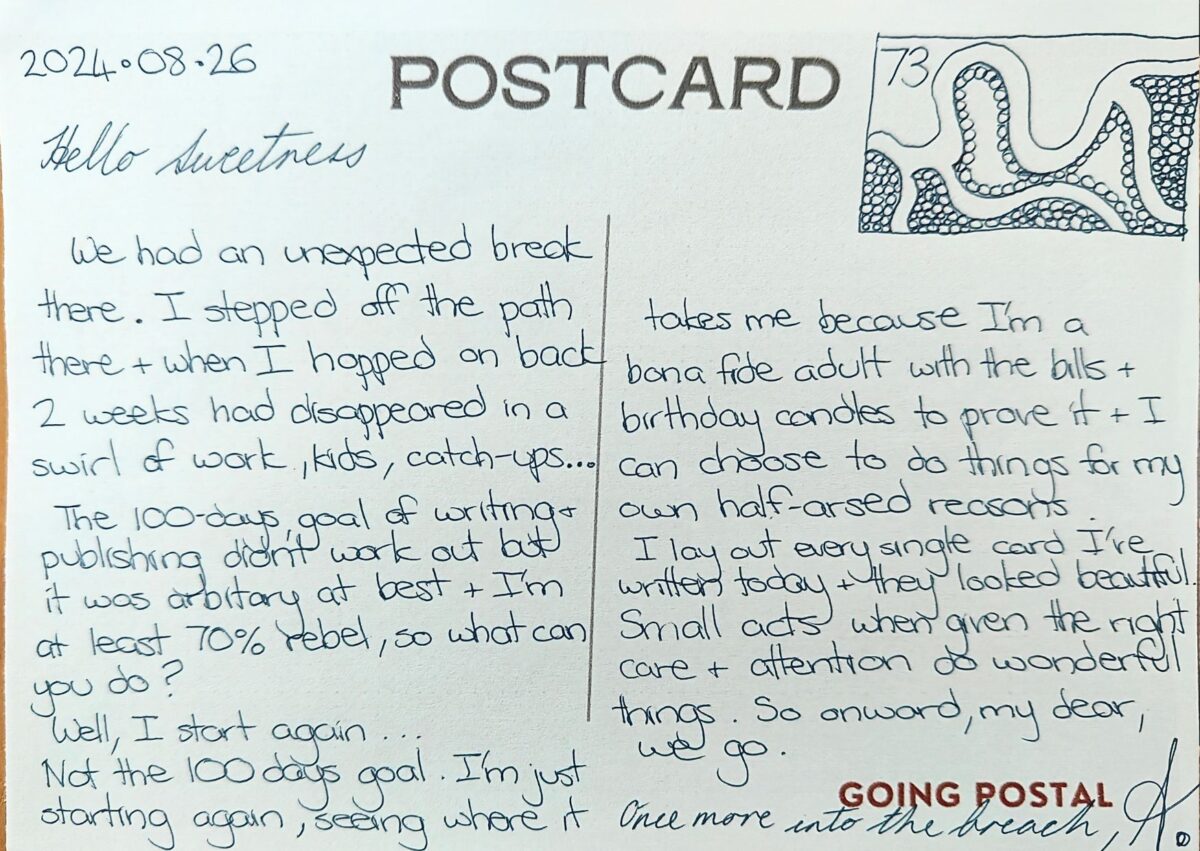 2024.08.26
POSTCARD
73
Hello Sweetness
We had an unexpected break
there. I stepped off the path
there + when I hopped on back
2 weeks had disappeared in a
swirl of work, kids, catch-ups...
The 100-days goal of writing +
publishing didn't work out but
it was arbitary at best + I'm
at least 70% rebel, so what can
you do?
Well, I start again...
Not the 100 days goal. I'm just
starting again, seeing where it
takes me because I'm a
bona fide adult with the bills +
birthday candles to prove it + I
can choose to do things for my
own half-arsed reasons.
I lay out every single card I've
written today + they looked beautiful.
Small acts when given the right
care + attention do wonderful
things. So onward, my dear,
we go.
GOING POSTAL
Once more into the breach, A.